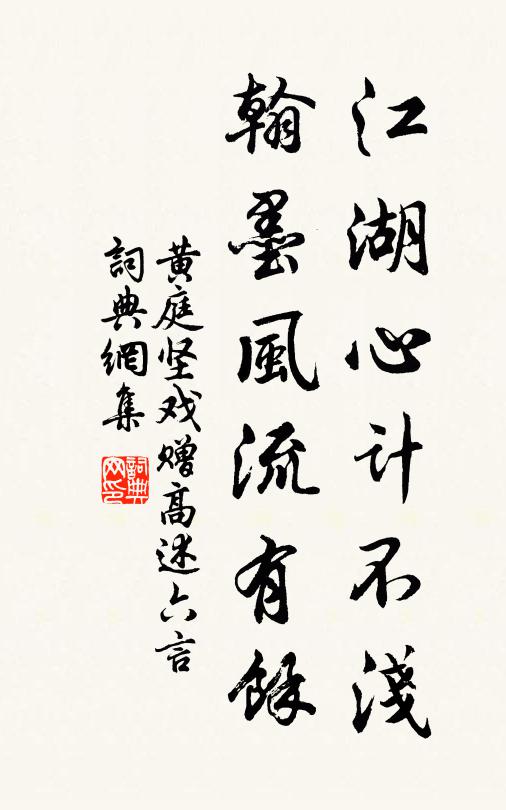 江湖心计不淺
翰墨風流有餘
黄庭坚戏赠高述六言
詞典網集
詞典网印